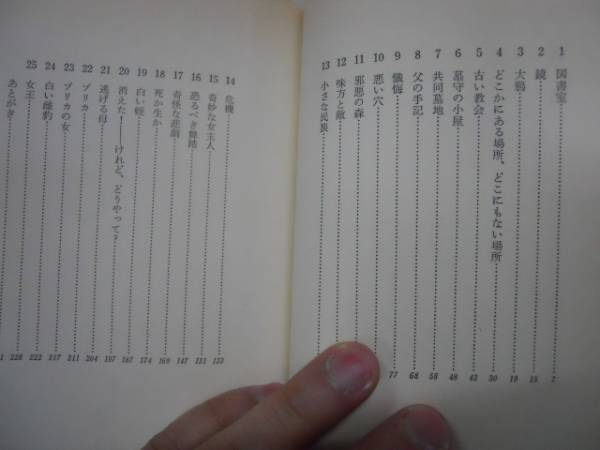 1 図書室 7
2 鏡 15
3 大鴉 19
4 どこかにある場所、どこにもない場所 30
5 古い教会 42
6 墓守の小屋 48
7 共同墓地 58
8 父の手記 68
9 懺悔 77
10 悪い穴
11 邪悪の森
12 味方と敵
13 小さな民族
14 危機 122
15 奇妙な女主人 131
16 恐るべき舞踏 147
17 奇怪な悲劇 160
18 死か生か 174
19 白い蛭 187
20 消えた――けれど、どうやって? 197
21 逃げる母 204
22 ブリカ 211
23 ブリカの女 217
24 白い雌豹 222
25 女王 228
あとがき